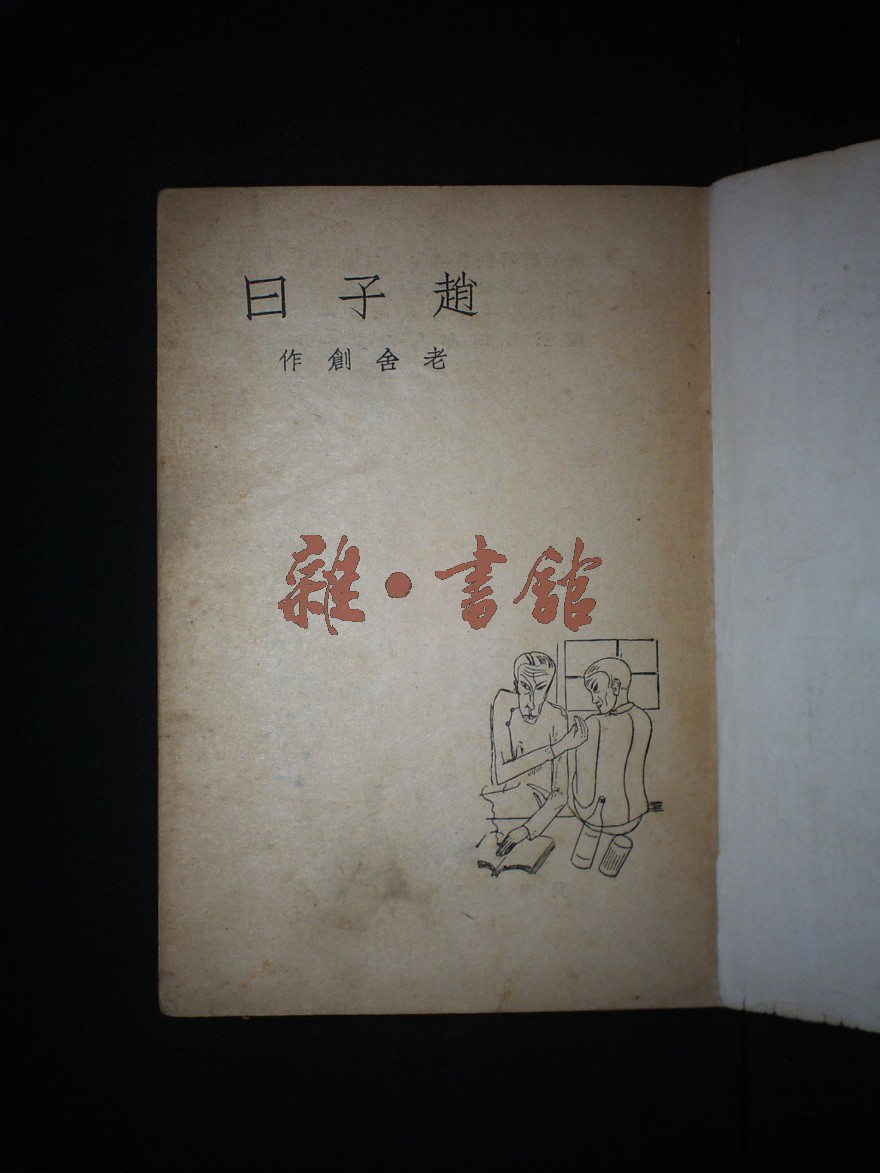 趙子曰
老舍創作
雜·書館